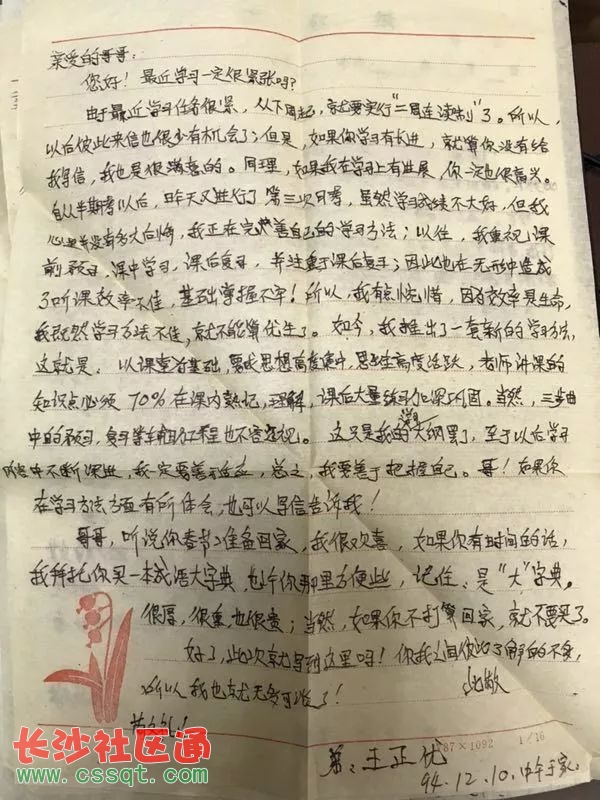 亲爱的哥哥:
您好!最近学习一定很紧张吗?
由于最近学习任务很紧,从下周起,就要实行"二周连读制"了。所以,
以后彼此来信也很少有机会了;但是,如果你学习有长进,就算你没有给
我写信,我也是很满意的。同理,如果我在学习上有进展,你一定也很高兴。
自从半期考以后,昨天又进行了第三次月考,虽然学习成绩不大好,但我
心里并没有多大后悔,我正在完善自己的学习方法;以往,我重视课
前预习,课中学习,课后复习,并注重于课后复习;因此也在无形中造成
了听课效率不佳,基础掌握不牢!所以,我有点惋惜,因为效率是生命,
我既然学习方法不佳,就不能算优生了。如今,我推出了一套新的学习方法,
这就是:以课堂为基础,要求思想高度集中,思维高度活跃,老师讲课的
知识点必须70%在课内熟记,理解,课后大量练习加深巩固。当然,三步曲
中的预习,复习等辅助工程也不容忽视。这只是我的学习大纲罢了,至于以后学习
中不断深进,我一定要善于,总之,我要善于把握自己。哥!如果你
在学习方法方面有所体会,也可以写信告诉我!
哥哥,听说你春节准备回家,我很欢喜,如果你有时间的话,
我拜托你买一本成语大字典,也许你那里方便些,记住:是"大"字典。
很厚,很重,也很贵;当然,如果你不打算回家,就不要买了。
好了,此次就写到这里吗!你我之间彼此了解的不多,
所以我也就无多可说了!
此致
敬礼!
弟:王正优
87×1092 1/16
94.12.10.中午于家.
长沙社区通
www.cssqt.com